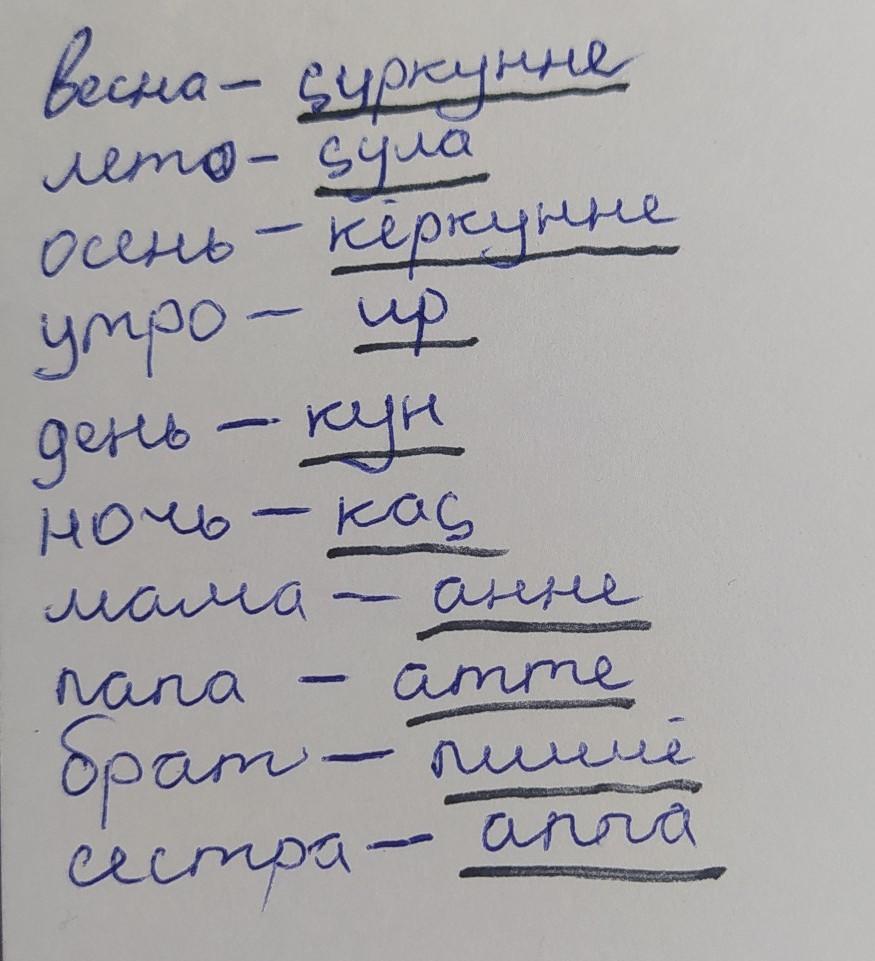 весна – ҫуркунне
лето – ҫула
осень – кӗркунне
утро – ир
день – кун
ночь – каҫ
мама – анне
папа – атте
брат –
сестра – аппа